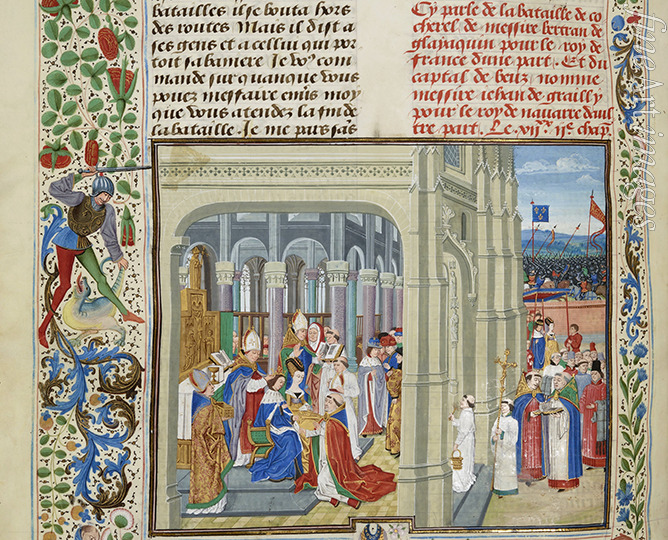 batailles il se bouta hors
des routes Mais il dist a
ses gens et a cellui qui por
toit sa baniere Je voꝰ com
mande sur quanque vous
pouez mesfaire enũs moy
que vous atendez la fin de
la bataille. Je me pars sãs
Cy parle de la bataille de co
cherel de messire bertran de
glayaquin pour le roy de
france dune part. Et du
captal de beuz nomme
messire iehan de grailly
pour le roy de nauarre daul
tre part. Le chap̃.
fineartimages